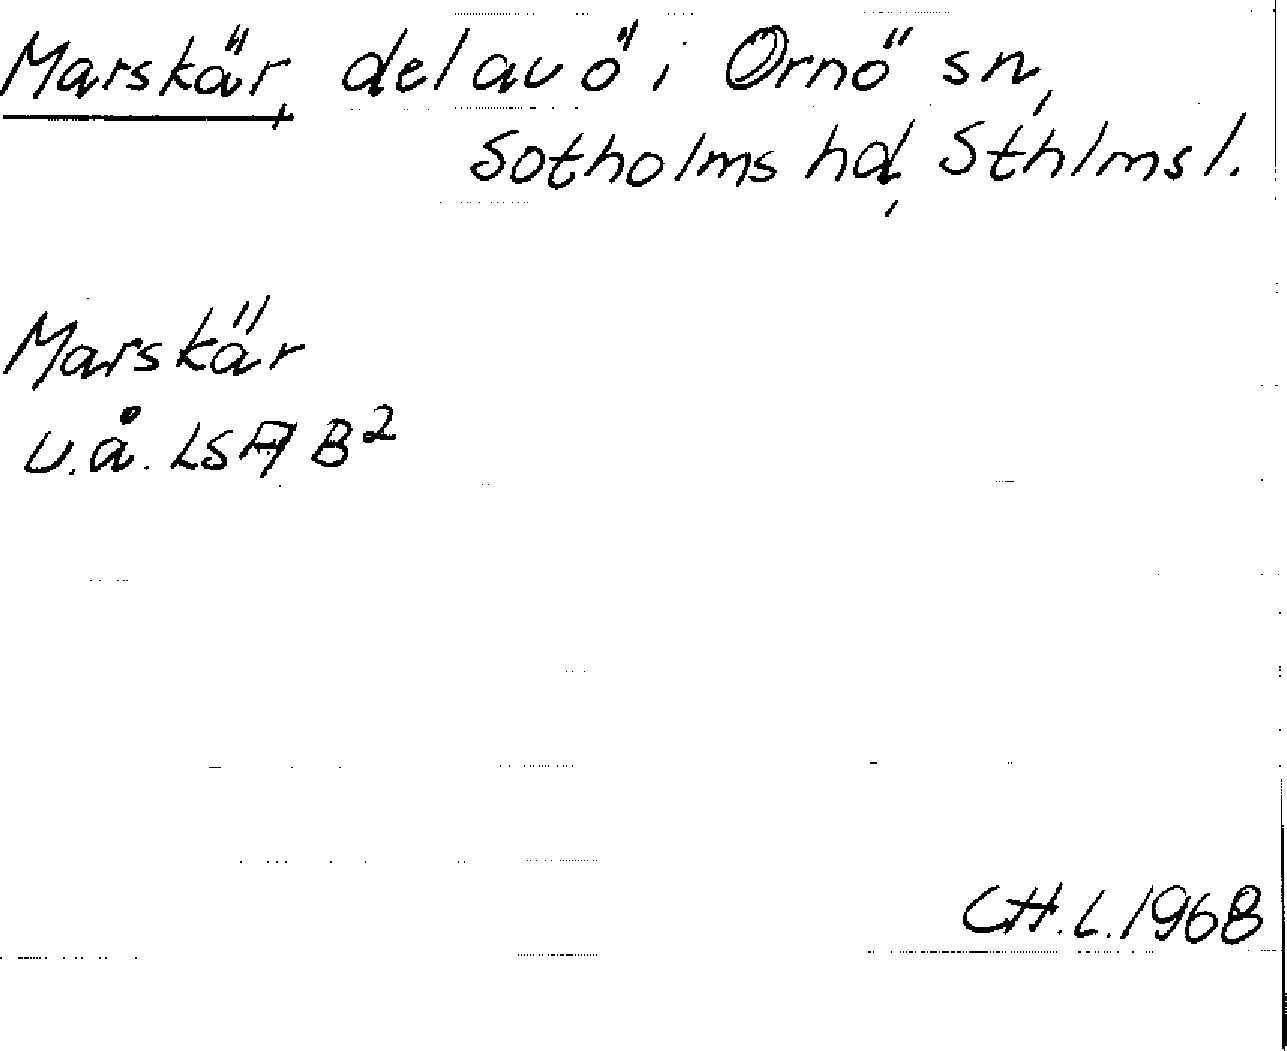 Marskär, del av ö i Ornö sn,
Sotholms hd, Sthlms l.
Marskär
u.å. LSA B²
CH.L. 1968